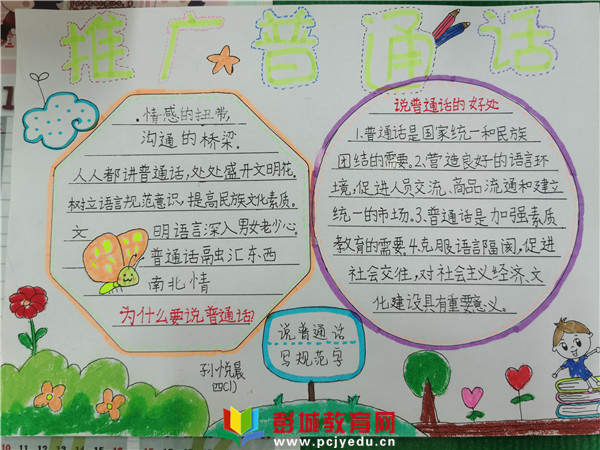 推广普通话
情感的纽带,
沟通的桥梁.
人人都讲普通话,处处盛开文明花.
树立语言规范意识,提高民族文化素质.
文明语言深入男女老少心.
普通话融汇东西
南北情
为什么要说普通话?
说普通话的好处
1.普通话是国家统一和民族
团结的需要.2.营造良好的语言环
境,促进人员交流、商品流通和建立
统一的市场.3.普通话是加强素质
教育的需要.4.克服语言隔阂,促进
社会交往,对社会主义经济、文
化建设具有重要意义.
说普通话
写规范字
孙悦晨
四(1)
彭城教育网
www.pcjyedu.cn
10 11 12 13 14 15 16